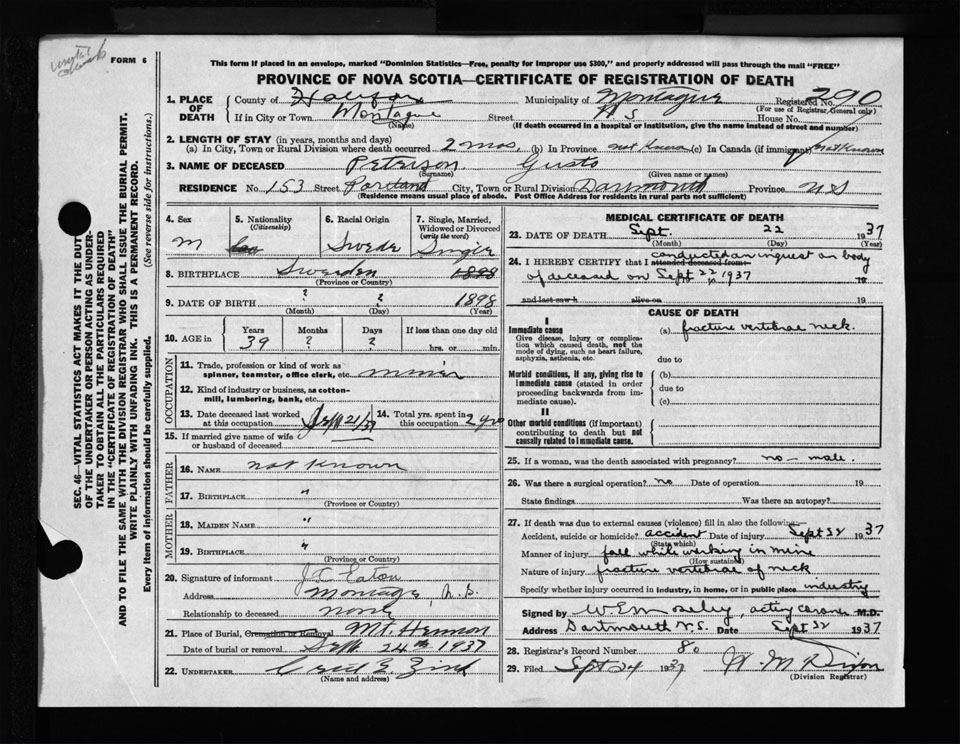 FORM 6
This form if placed in an envelope, marked "Dominion Statistics—Free, penalty for improper use $300," and properly addressed will pass through the mail "FREE"
PROVINCE OF NOVA SCOTIA—CERTIFICATE OF REGISTRATION OF DEATH
1. PLACE OF DEATH County of Halifax Municipality of Montague Registered No. 290
(For use of Registrar General only)
If in City or Town Montague Street N S House No.
(Name) (If death occurred in a hospital or institution, give the name instead of street and number)
2. LENGTH OF STAY (in years, months and days)
(a) In City, Town or Rural Division where death occurred 2 mos. (b) In Province not known (c) In Canada (if immigrant) not known
3. NAME OF DECEASED Peterson Gusto
(Surname) (Given name or names)
RESIDENCE No. 153 Street Portland City, Town or Rural Division Dartmouth Province N S
(Residence means usual place of abode. Post Office Address for residents in rural parts not sufficient)
SEC. 46—VITAL STATISTICS ACT MAKES IT THE DUTY
OF THE UNDERTAKER OR PERSON ACTING AS UNDER-
TAKER TO OBTAIN ALL THE PARTICULARS REQUIRED
IN THE "CERTIFICATE OF REGISTRATION OF DEATH"
AND TO FILE THE SAME WITH THE DIVISION REGISTRAR WHO SHALL ISSUE THE BURIAL PERMIT.
WRITE PLAINLY WITH UNFADING INK. THIS IS A PERMANENT RECORD.
Every item of information should be carefully supplied. (See reverse side for instructions.)
4. Sex 5. Nationality 6. Racial Origin 7. Single, Married,
(Citizenship) Widowed or Divorced
(write the word)
M Swede Single
8. BIRTHPLACE Sweden 1898
(Province or Country)
9. DATE OF BIRTH ? ? 1898
(Month) (Day) (Year)
10. AGE in Years Months Days If less than one day old
39 ? ? hrs. or min.
OCCUPATION
11. Trade, profession or kind of work as
spinner, teamster, office clerk, etc. miner
12. Kind of industry or business, as cotton-
mill, lumbering, bank, etc.
13. Date deceased last worked 14. Total yrs. spent in
at this occupation Sept 21/37 this occupation 2 yrs
15. If married give name of wife
or husband of deceased
FATHER
16. NAME not known
17. BIRTHPLACE "
(Province or Country)
MOTHER
18. MAIDEN NAME "
19. BIRTHPLACE "
(Province or Country)
20. Signature of informant J C Eaton
Address Montague, N.S.
Relationship to deceased none
21. Place of Burial, Cremation or Removal Mt. Hermon
Date of burial or removal Sept. 24th 1937
22. UNDERTAKER
(Name and address)
MEDICAL CERTIFICATE OF DEATH
23. DATE OF DEATH Sept. 22 1937
(Month) (Day) (Year)
24. I HEREBY CERTIFY that I attended deceased from: conducted an inquest on body
of deceased on Sept 22 1937 to 19
and last saw h alive on 19
CAUSE OF DEATH
I
Immediate cause (a) fracture vertebrae neck.
Give disease, injury or complica-
tion which caused death, not the
mode of dying, such as heart failure,
asphyxia, asthenia, etc. due to
Morbid conditions, if any, giving rise to (b)
immediate cause (stated in order due to
proceeding backwards from im-
mediate cause). (c)
II
Other morbid conditions (if important)
contributing to death but not
causally related to immediate cause.
25. If a woman, was the death associated with pregnancy? no – male.
26. Was there a surgical operation? no Date of operation 19
State findings Was there an autopsy?
27. If death was due to external causes (violence) fill in also the following:—
Accident, suicide or homicide? accident Date of injury Sept 22 1937
(State which)
Manner of injury fall while working in mine
(How sustained)
Nature of injury fracture vertebrae of neck
Specify whether injury occurred in industry, in home, or in public place industry
Signed by acting coroner M.D.
Address Dartmouth N.S. Date Sept 22 1937
28. Registrar's Record Number 80
29. Filed Sept 24 1937
(Division Registrar)